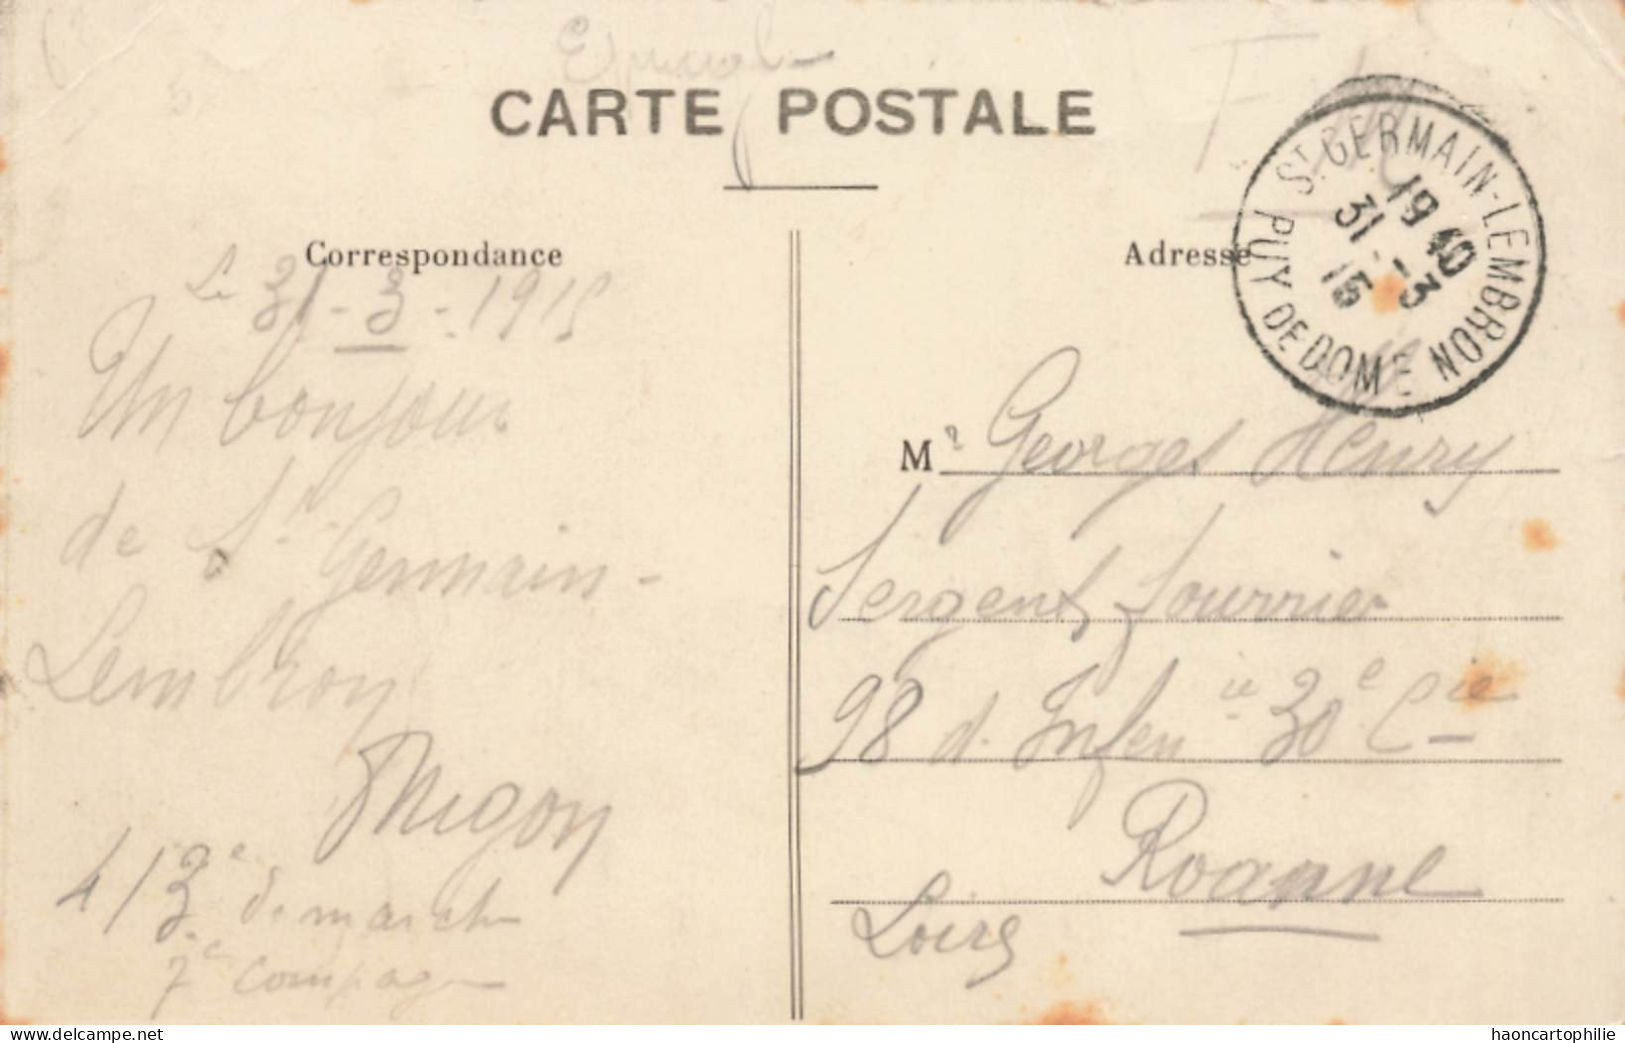 CARTE POSTALE
Correspondance
Le 31-3-1915
Un bonjour
de St Germain-
Lembron
Migon
4/3e de marche
7e compagn
Adresse
ST GERMAIN-LEMBRON
19 40
31 -3
15
PUY DE DOME
Mr Georges Henry
Sergent fourrier
98 d. Infen ie 30e Cie
Roanne
Loire
www.delcampe.net
haoncartophilie